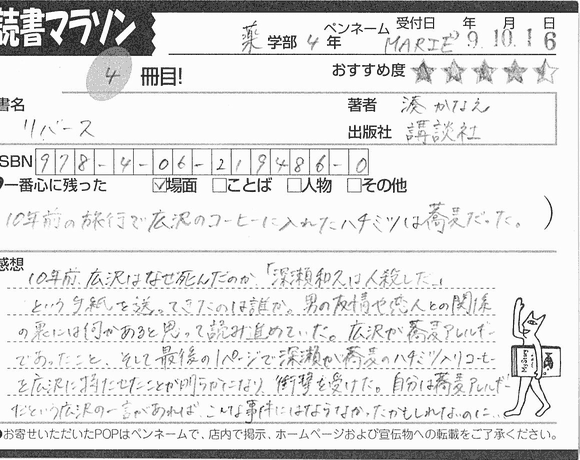 読書マラソン
薬 学部 4 年 ペンネーム MARIE 受付日 年 月 日
9.10.16
4 冊目!
おすすめ度 ★★★★☆
書名 リバース
著者 湊かなえ
出版社 講談社
ISBN 978-4-06-219486-0
一番心に残った ☑場面 □ことば □人物 □その他
10年前の旅行で広沢のコーヒーに入れたハチミツは蕎麦だった。)
感想
10年前、広沢はなぜ死んだのか、「深瀬和久は人殺しだ。」
という手紙を送ってきたのは誰か。男の友情や恋人との関係
の裏には何かあると思って読み進めていた。広沢が蕎麦アレルギー
であったこと、そして最後の1ページで深瀬が蕎麦のハチミツ入りコーヒー
を広沢に持たせたことが明らかになり、衝撃を受けた。自分は蕎麦アレルギー
だという広沢の一言があれば、こんな事件にはならなかったかもしれないのに…
●お寄せいただいたPOPはペンネームで、店内で掲示、ホームページおよび宣伝物への転載をご了承ください。